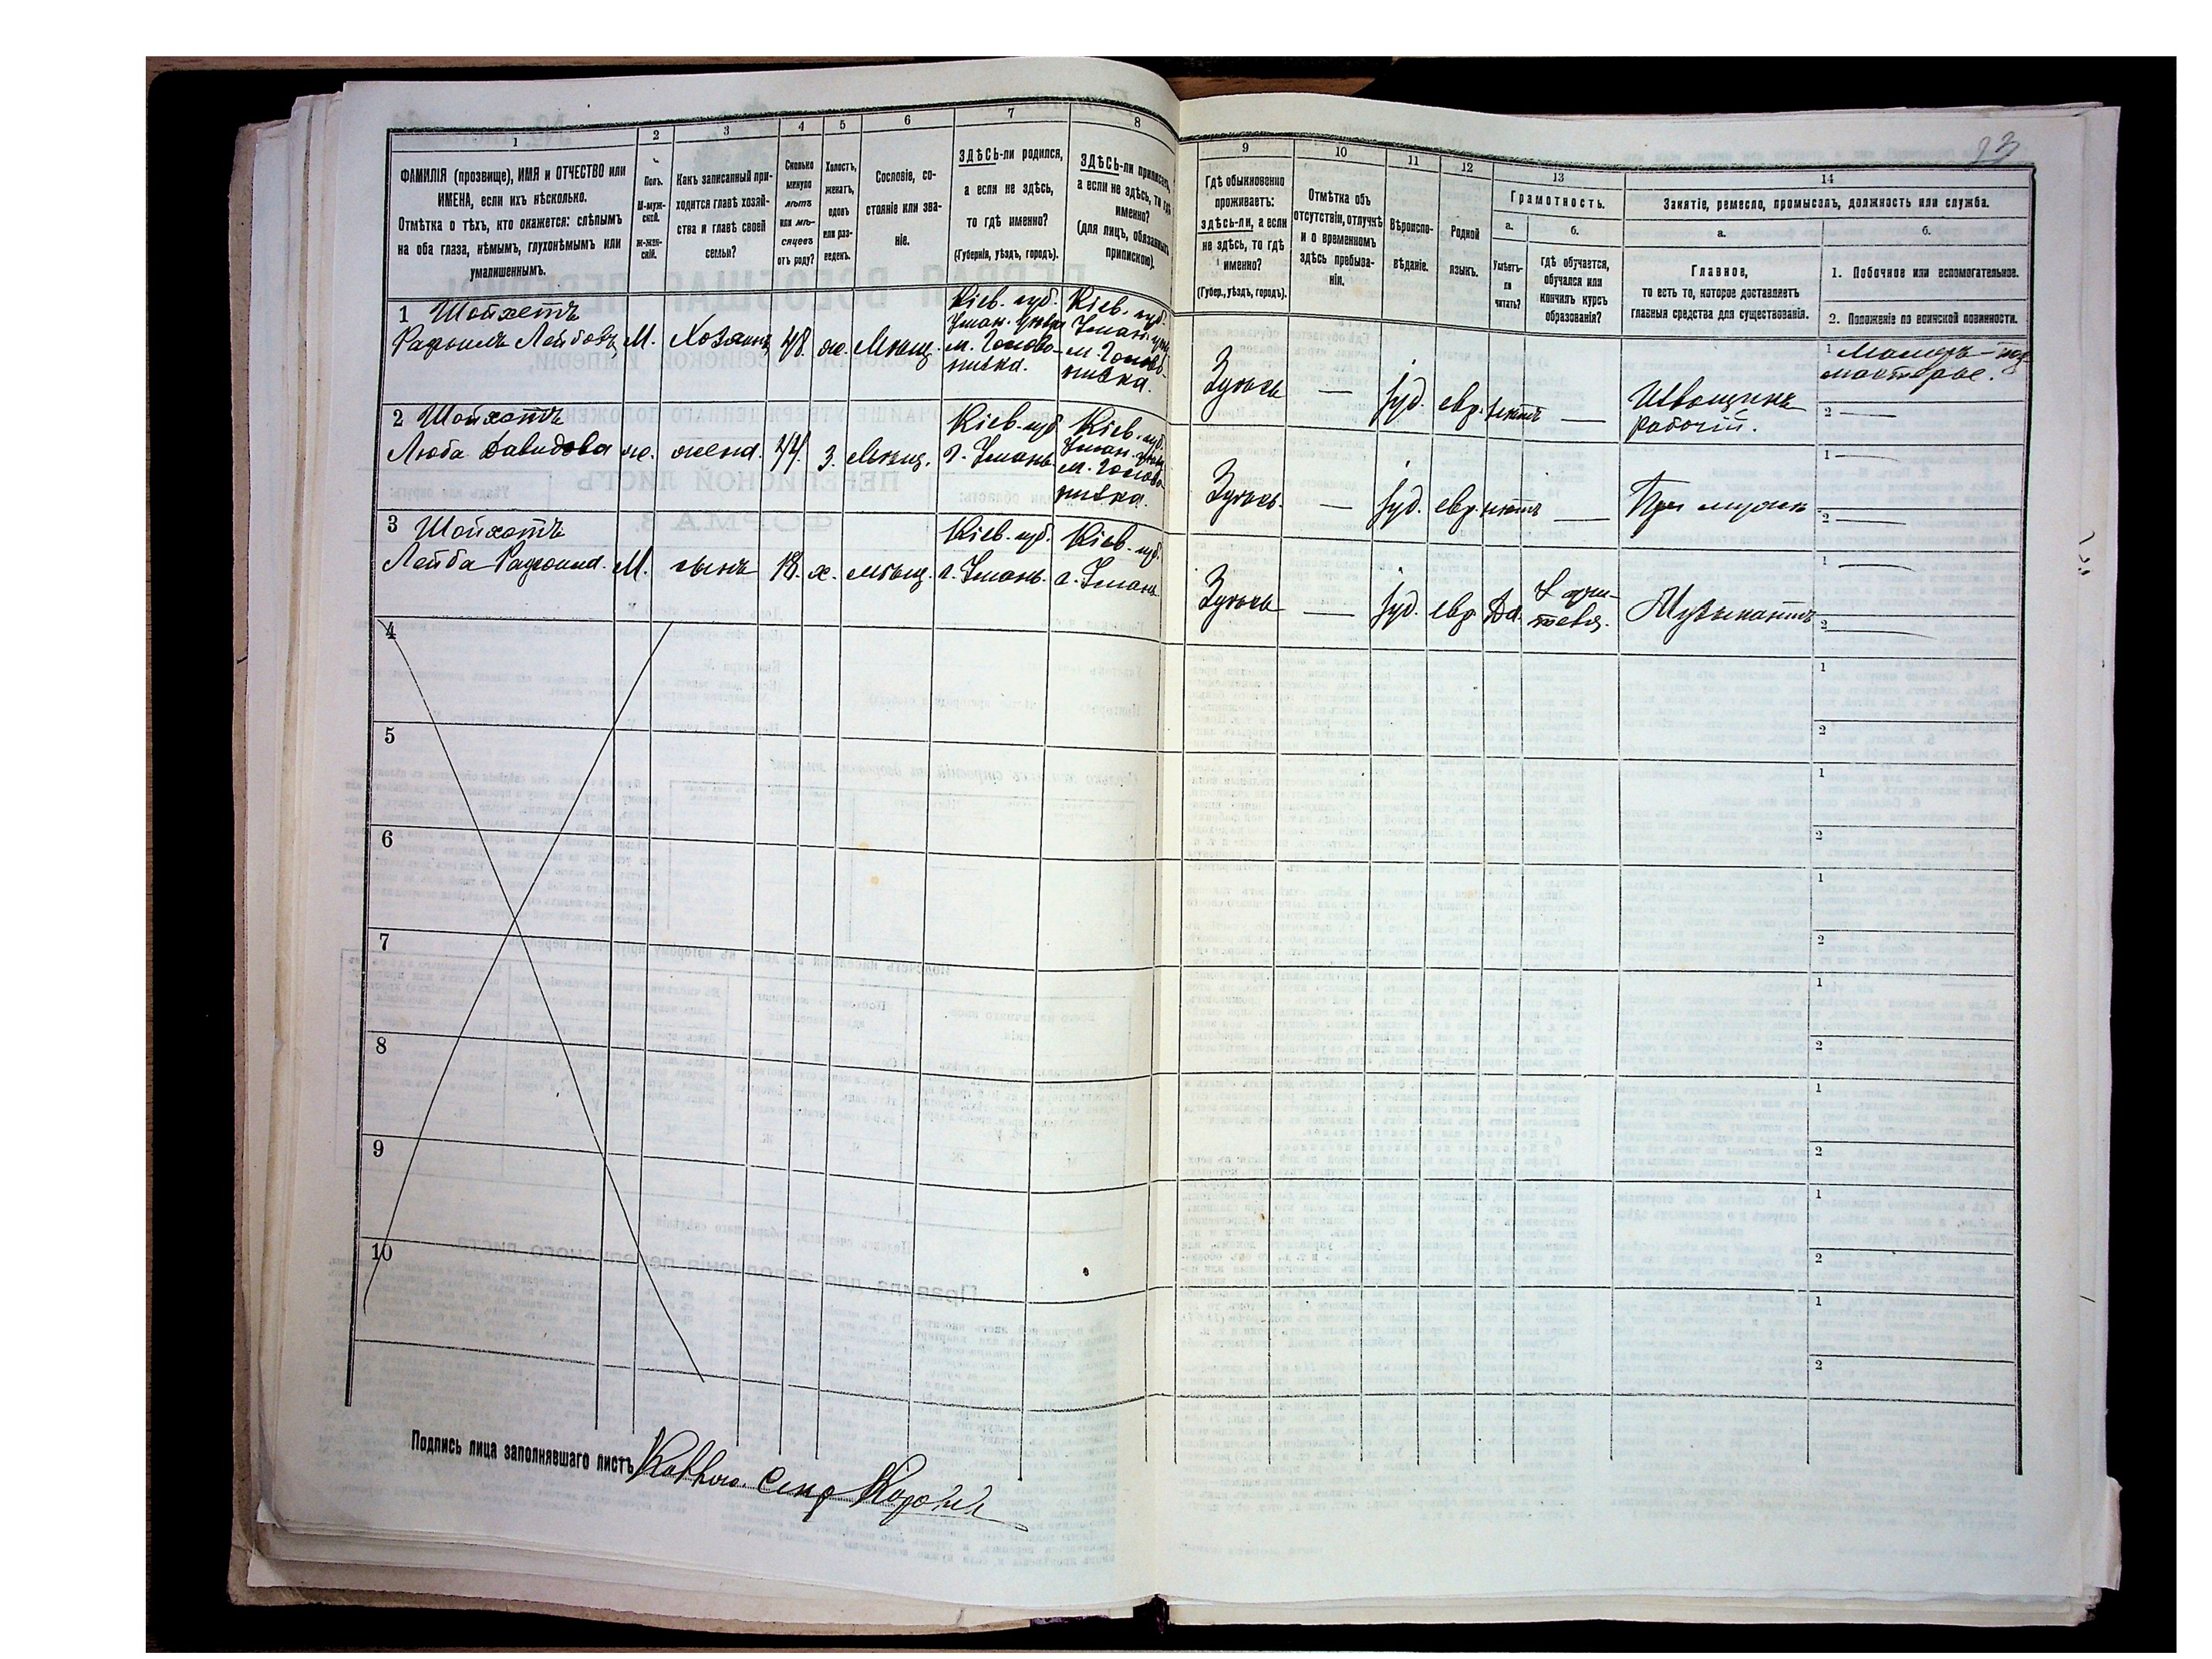 23
1
2
3
4
5
6
7
8
ФАМИЛІЯ (прозвище), ИМЯ и ОТЧЕСТВО или
ИМЕНА, если ихъ нѣсколько.
Отмѣтка о тѣхъ, кто окажется: слѣпымъ
на оба глаза, нѣмымъ, глухонѣмымъ или
умалишеннымъ.
Полъ.
М-муж-
ской.
Ж-жен-
скій.
Какъ записанный при-
ходится главѣ хозяй-
ства и главѣ своей
семьи?
Сколько
минуло
лѣтъ
или мѣ-
сяцевъ
отъ роду?
Холостъ,
женатъ,
вдовъ
или раз-
веденъ.
Сословіе, со-
стояніе или зва-
ніе.
ЗДѢСЬ-ли родился,
а если не здѣсь,
то гдѣ именно?
(Губернія, уѣздъ, городъ).
ЗДѢСЬ-ли приписанъ,
а если не здѣсь, то гдѣ
именно?
(для лицъ, обязанныхъ
припискою).
9
10
11
12
13
14
Гдѣ обыкновенно
проживаетъ:
здѣсь-ли, а если
не здѣсь, то гдѣ
именно?
(Губер., уѣздъ, городъ).
Отмѣтка объ
отсутствіи, отлучкѣ
и о временномъ
здѣсь пребыва-
ніи.
Вѣроиспо-
вѣданіе.
Родной
языкъ.
Грамотность.
а.
б.
Умѣетъ-
ли
читать?
гдѣ обучается,
обучался или
кончилъ курсъ
образованія?
Занятіе, ремесло, промыселъ, должность или служба.
а.
б.
Главное,
то есть то, которое доставляетъ
главныя средства для существованія.
1. Побочное или вспомогательное.
2. Положеніе по воинской повинности.
1 Шойхетъ
Рафоилъ Лейбовъ М. Хозяинъ 48. ж. Мѣщ.
Кіев. губ.
Уман. уѣзд
м. Голово-
нивка.
Кіев. губ.
Уман. уѣзд
м. Голово-
нивка.
Здѣсь — Іуд. евр. нѣтъ —
рабочій.
1
2 —
2 Шойхетъ
Люба Давидова ж. жена. 44. з. Мѣщ.
Кіев. губ
г. Умань.
Кіев. губ.
Уман. уѣзд
м. Голово
нивка.
Здѣсь. — Іуд. евр. нѣтъ — При мужѣ
1 —
2 —
3 Шойхетъ
Лейба Рафоил. М. сынъ 18. х. мѣщ.
Кіев. губ.
г. Умань.
Кіев. губ.
г. Умань
Здѣсь — Іуд. евр. Да. Музыкантъ
1 —
2 —
4
1
2
5
1
2
6
1
2
7
1
2
8
1
2
9
1
2
10
1
2
Подпись лица заполнявшаго листъ